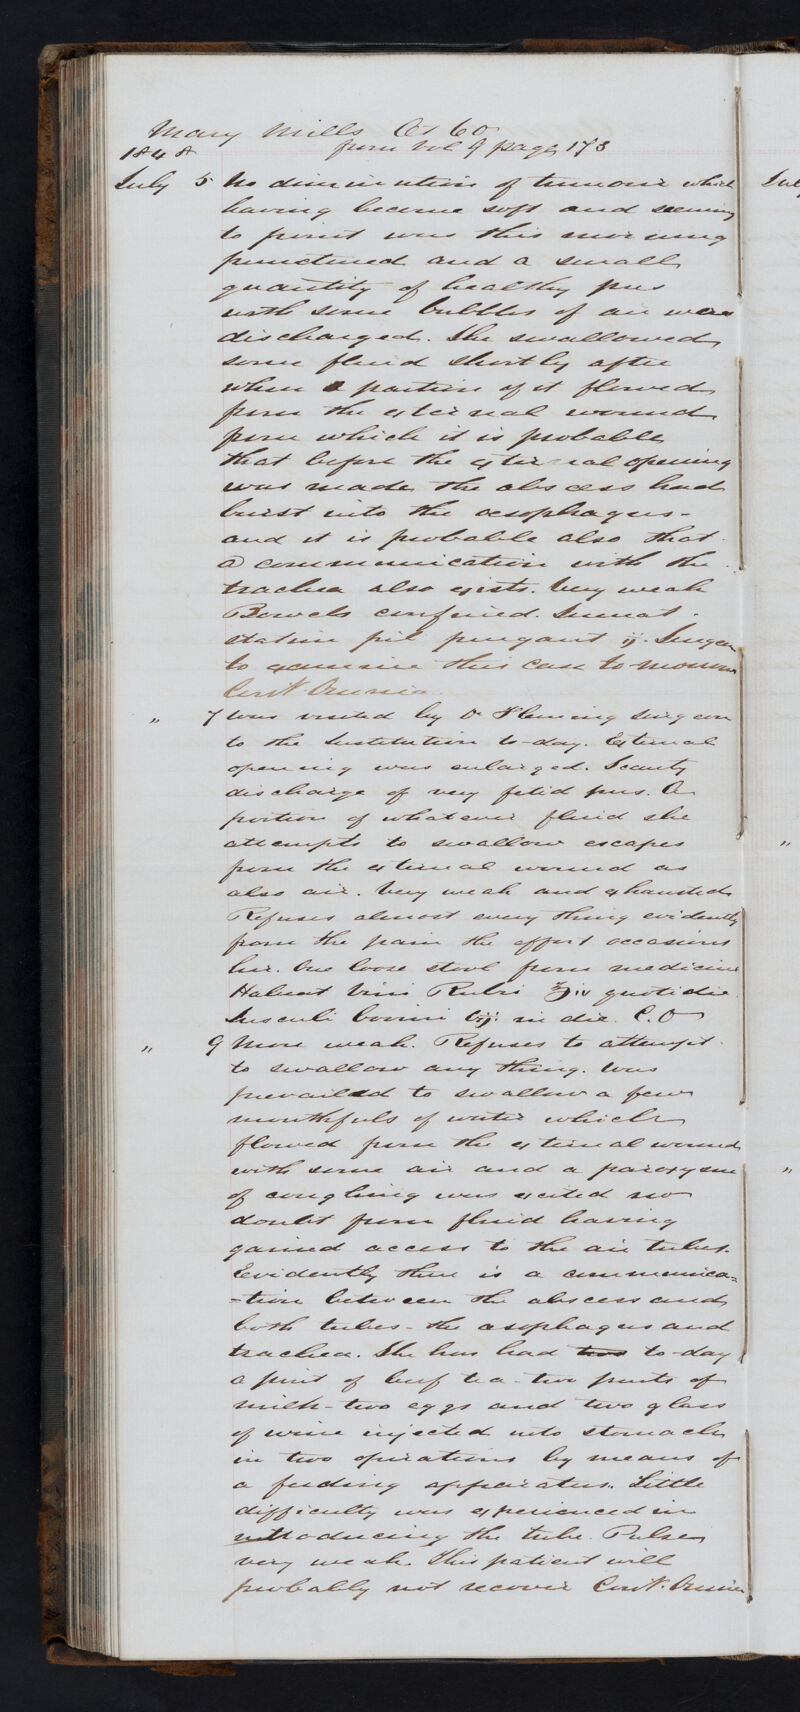 Mary Mills Æt 60
from Vol 9 page 173
1848
July 5 No diminution of tumour which
having become soft and seeming
to point was this morning
punctured and a small
quantity of healthy pus
with some bubbles of air were
discharged. She swallowed
some fluid shortly after
when a portion of it flowed
from the external wound
from which it is probable
that before the external opening
was made the abscess had
burst into the œsophagus -
and it is probable also that
a communication with the
trachea also exists. Very weak
Bowels confined. Sumat
statim pil purgant ij. Surgeon
to examine this case to-morrow
Cont. Omnia
" 7 Was visited by Dr Fleming Surgeon
to the Institution to-day. External
opening was enlarged. Scanty
discharge of very fetid pus. A
portion of whatever fluid she
attempts to swallow escapes
from the external wound as
also air. Very weak and exhausted
Refuses almost every thing evidently
from the pain the effort occasions
her. One loose stool from medicine
Habeat Vini Rubri ℥iv quotidie
Jusculi bovini in die. C. O
" 9 More weak. Refuses to attempt
to swallow any thing. Was
prevailed to swallow a few
mouthfuls of water which
flowed from the external wound
with some air and a paroxysm
of coughing was excited no
doubt from fluid having
gained access to the air tubes.
Evidently there is a communica=
=tion between the abscess and
both tubes - the œsophagus and
trachea. She has had two to-day
a pint of beef tea - two pints of
milk - two eggs and two glass
of wine injected into stomach
in two operations by means of
a feeding apparatus. Little
difficulty was experienced in
introducing the tube. Pulse
very weak. This patient will
probably not recover Cont. Omnia
July
"
"